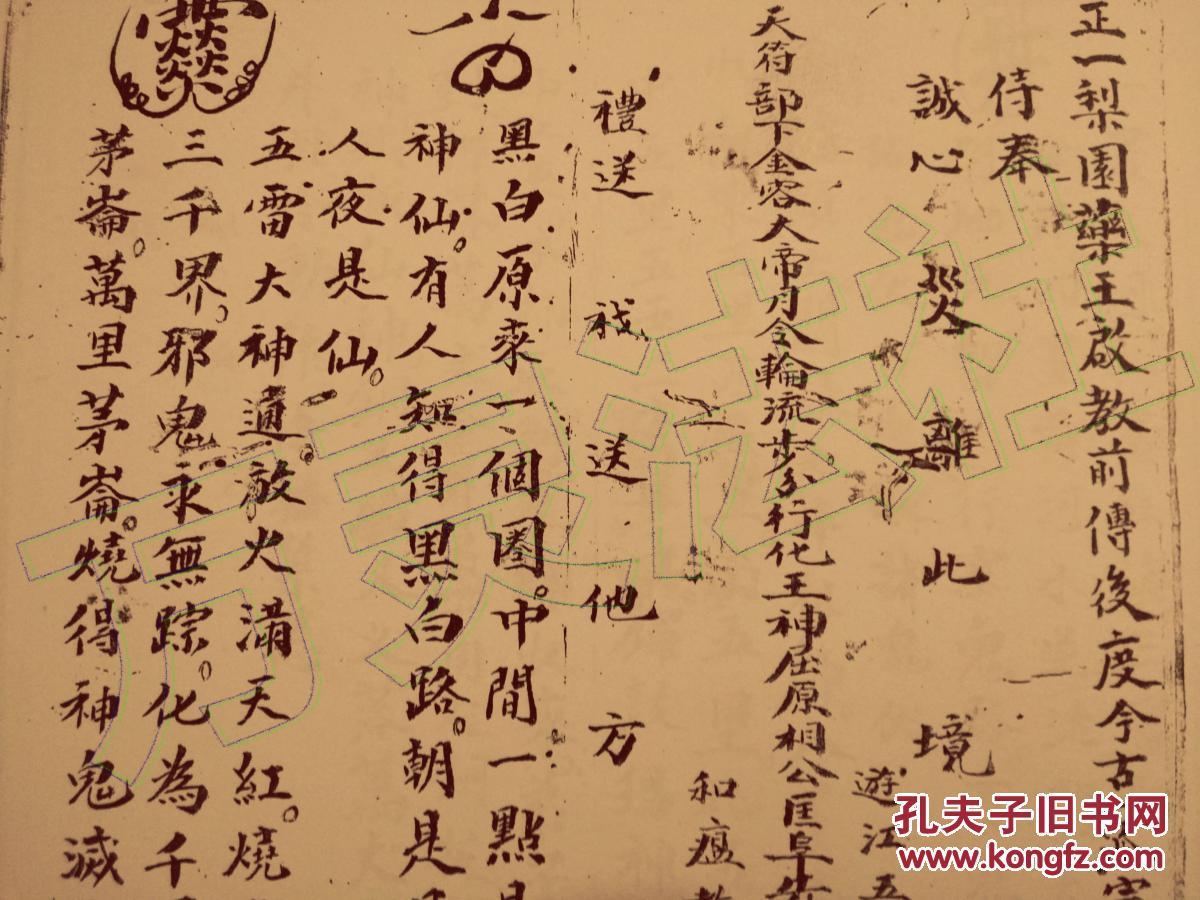 正一梨園藥王啟教前傳後度今古
侍奉
誠心 災 離 此 境
遊江五
天符部下金容大帝月令輪流步分行化王神屈原相公匡阜
和瘟教
禮送 送 他 方
黑白原來一個圈。中間一點是
神仙。有人知得黑白路。朝是
人夜是仙。
五雷大神通。放火滿天紅。燒
三千界。邪鬼永無踪。化為千
茅崙。萬里茅崙。燒得神鬼滅
万灵法社
孔夫子旧书网
www.kongfz.com